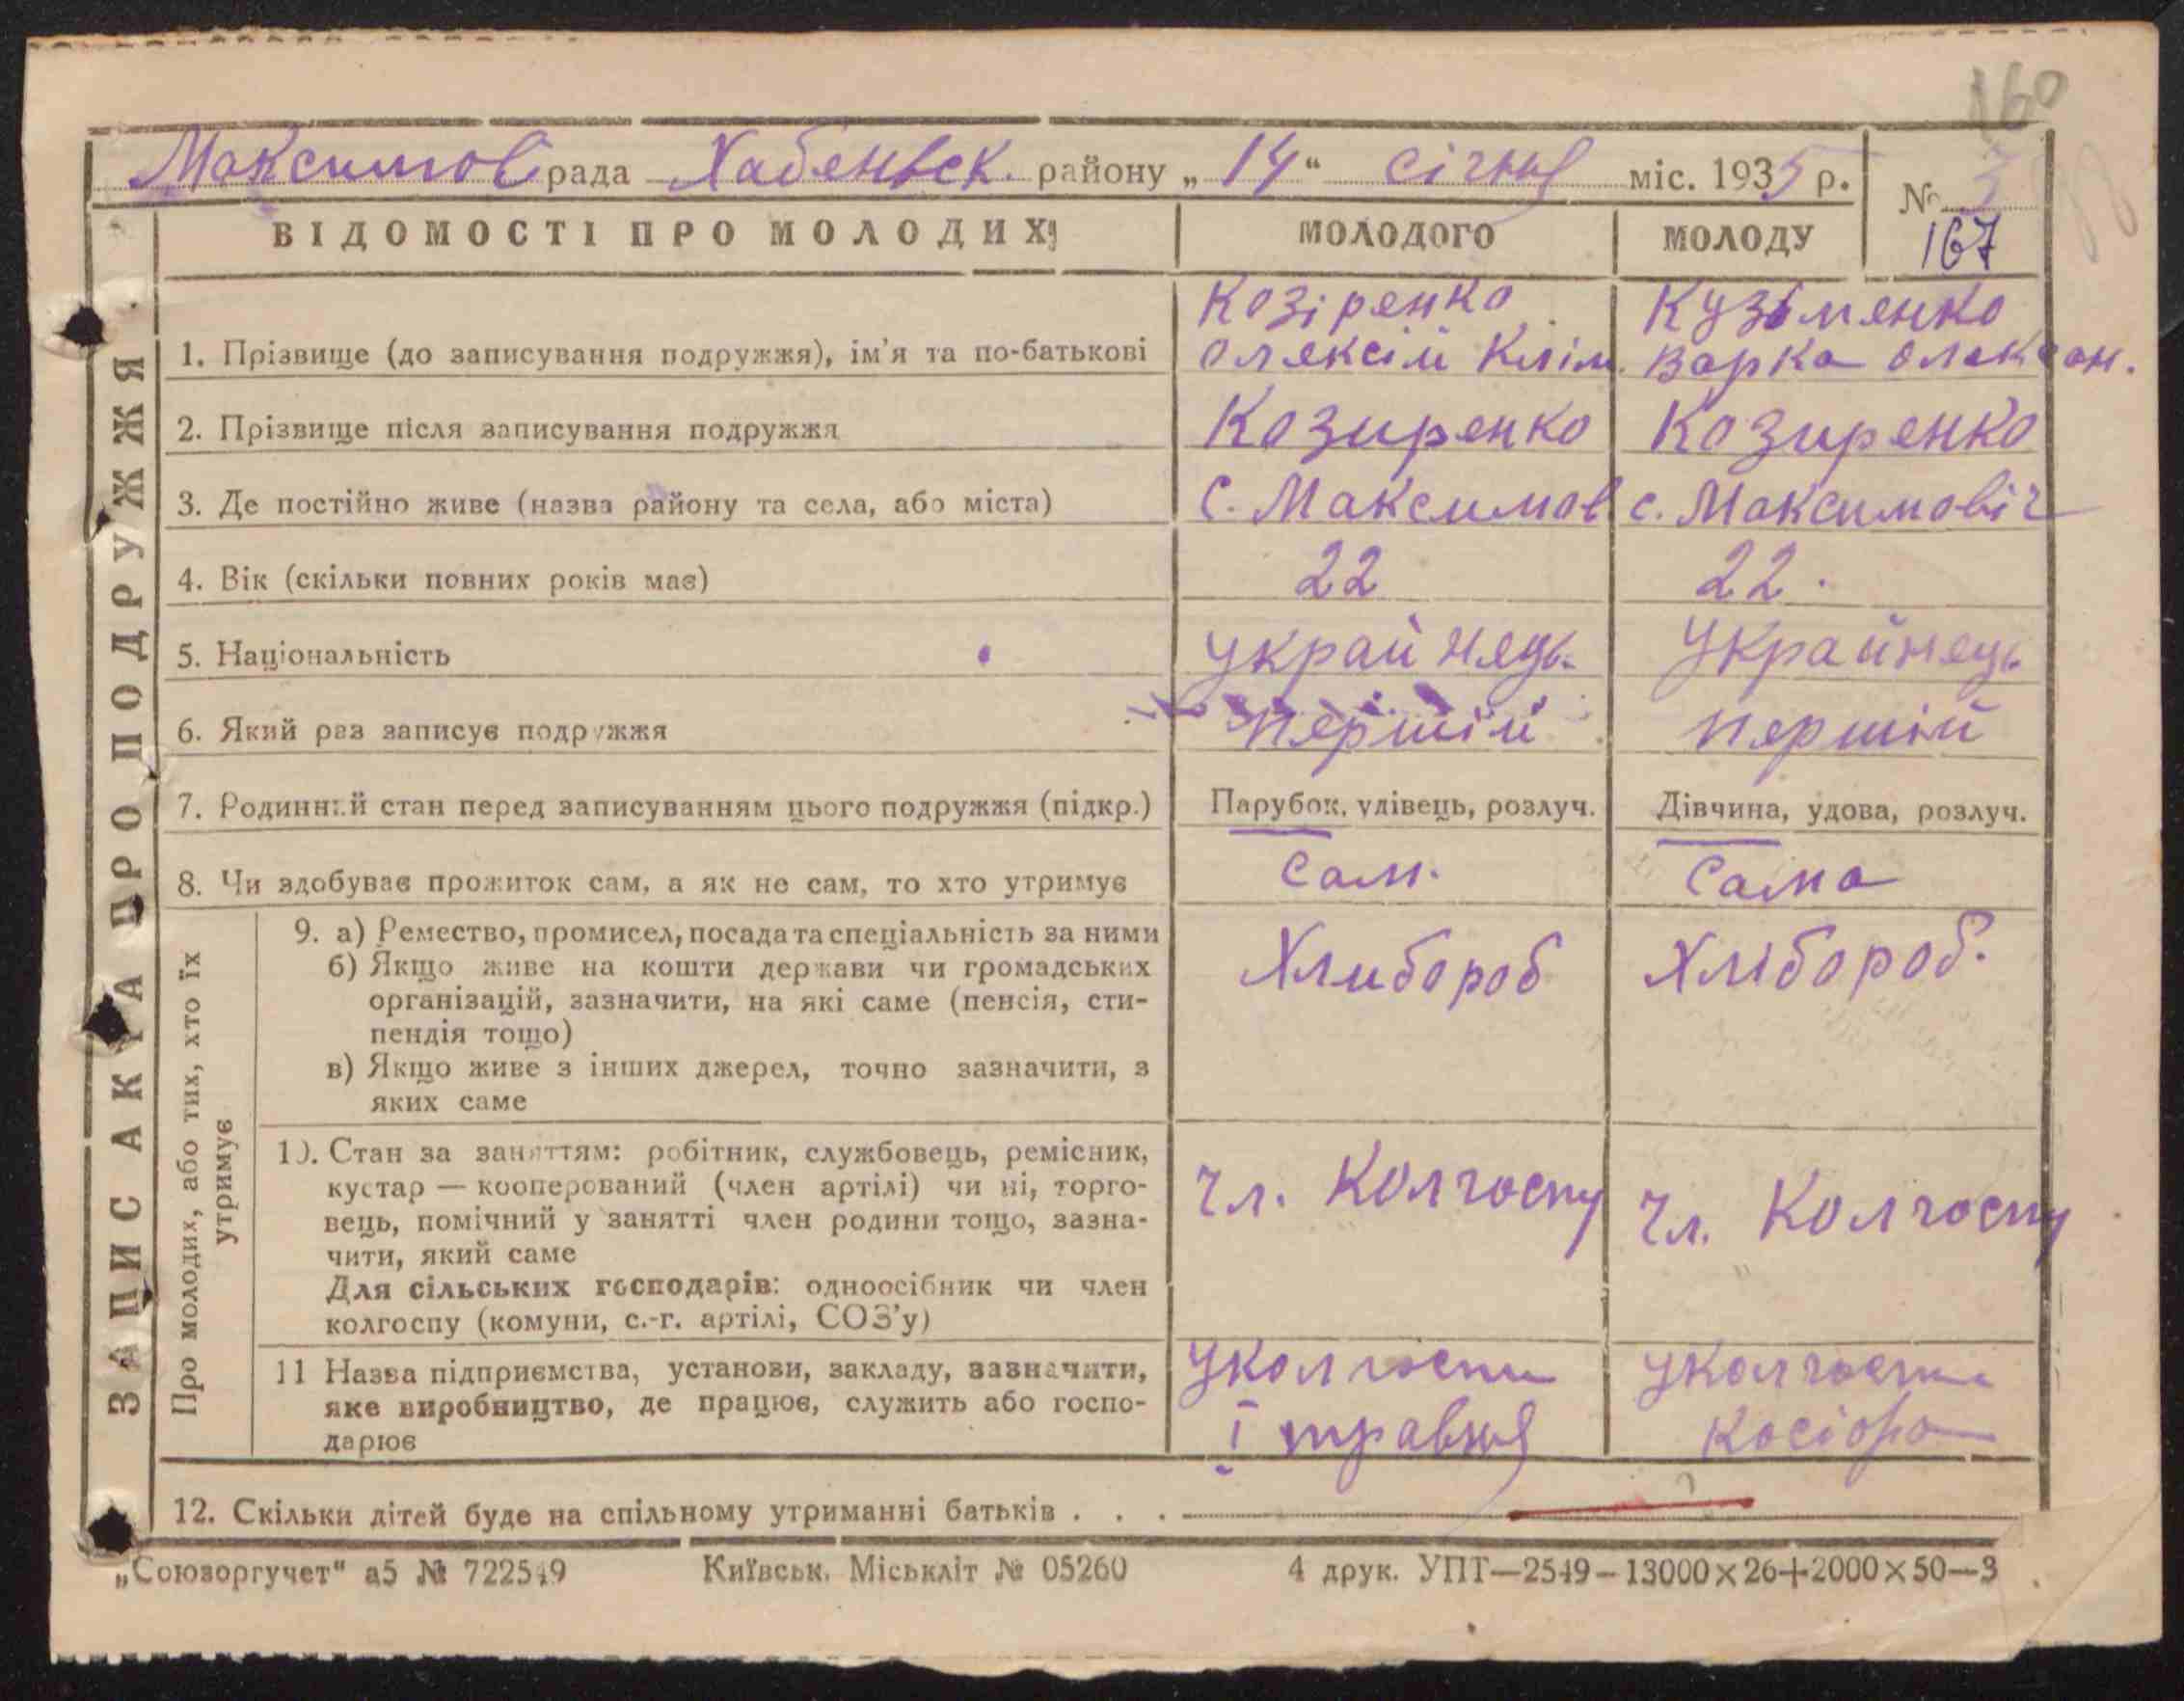 160
Максимов рада Хабеньск. району „14“ січня міс. 1935 р.
№ 3
167
ВІДОМОСТІ ПРО МОЛОДИХ
МОЛОДОГО
МОЛОДУ
ЗАПИС АКТА ПРО ПОДРУЖЖЯ
1. Прізвище (до записування подружжя), ім’я та по-батькові
Козіренко
Олексій Клім.
Кузьменко
Варка Олексан.
2. Прізвище після записування подружжя
Козиренко
Козиренко
3. Де постійно живе (назва району та села, або міста)
С. Максимов
с. Максимовіч
4. Вік (скільки повних років має)
22
22.
5. Національність
Украйнець.
Украйнець
6. Який раз записує подружжя
першій
першій
7. Родинний стан перед записуванням цього подружжя (підкр.)
Парубок, удівець, розлуч.
Дівчина, удова, розлуч.
8. Чи здобуває прожиток сам, а як не сам, то хто утримує
Сам.
Сама
Про молодих, або тих, хто їх
утримує
9. а) Ремество, промисел, посада та спеціальність за ними
б) Якщо живе на кошти держави чи громадських
організацій, зазначити, на які саме (пенсія, сти-
пендія тощо)
в) Якщо живе з інших джерел, точно зазначити, з
яких саме
Хлибороб
Хлібороб.
10. Стан за заняттям: робітник, службовець, ремісник,
кустар — кооперований (член артілі) чи ні, торго-
вець, помічний у занятті член родини тощо, зазна-
чити, який саме
Для сільських господарів: одноосібник чи член
колгоспу (комуни, с.-г. артілі, СОЗ’у)
Чл. Колгоспу
Чл. Колгоспу
11 Назва підприємства, установи, закладу, зазначити,
яке виробництво, де працює, служить або госпо-
дарює
Уколгоспи
І травня
Уколгоспи
Косіора
12. Скільки дітей буде на спільному утриманні батьків . . .
„Союзоргучет“ а5 № 722549
Київськ. Міськліт № 05260
4 друк. УПТ—2549—13000×26+2000×50—3